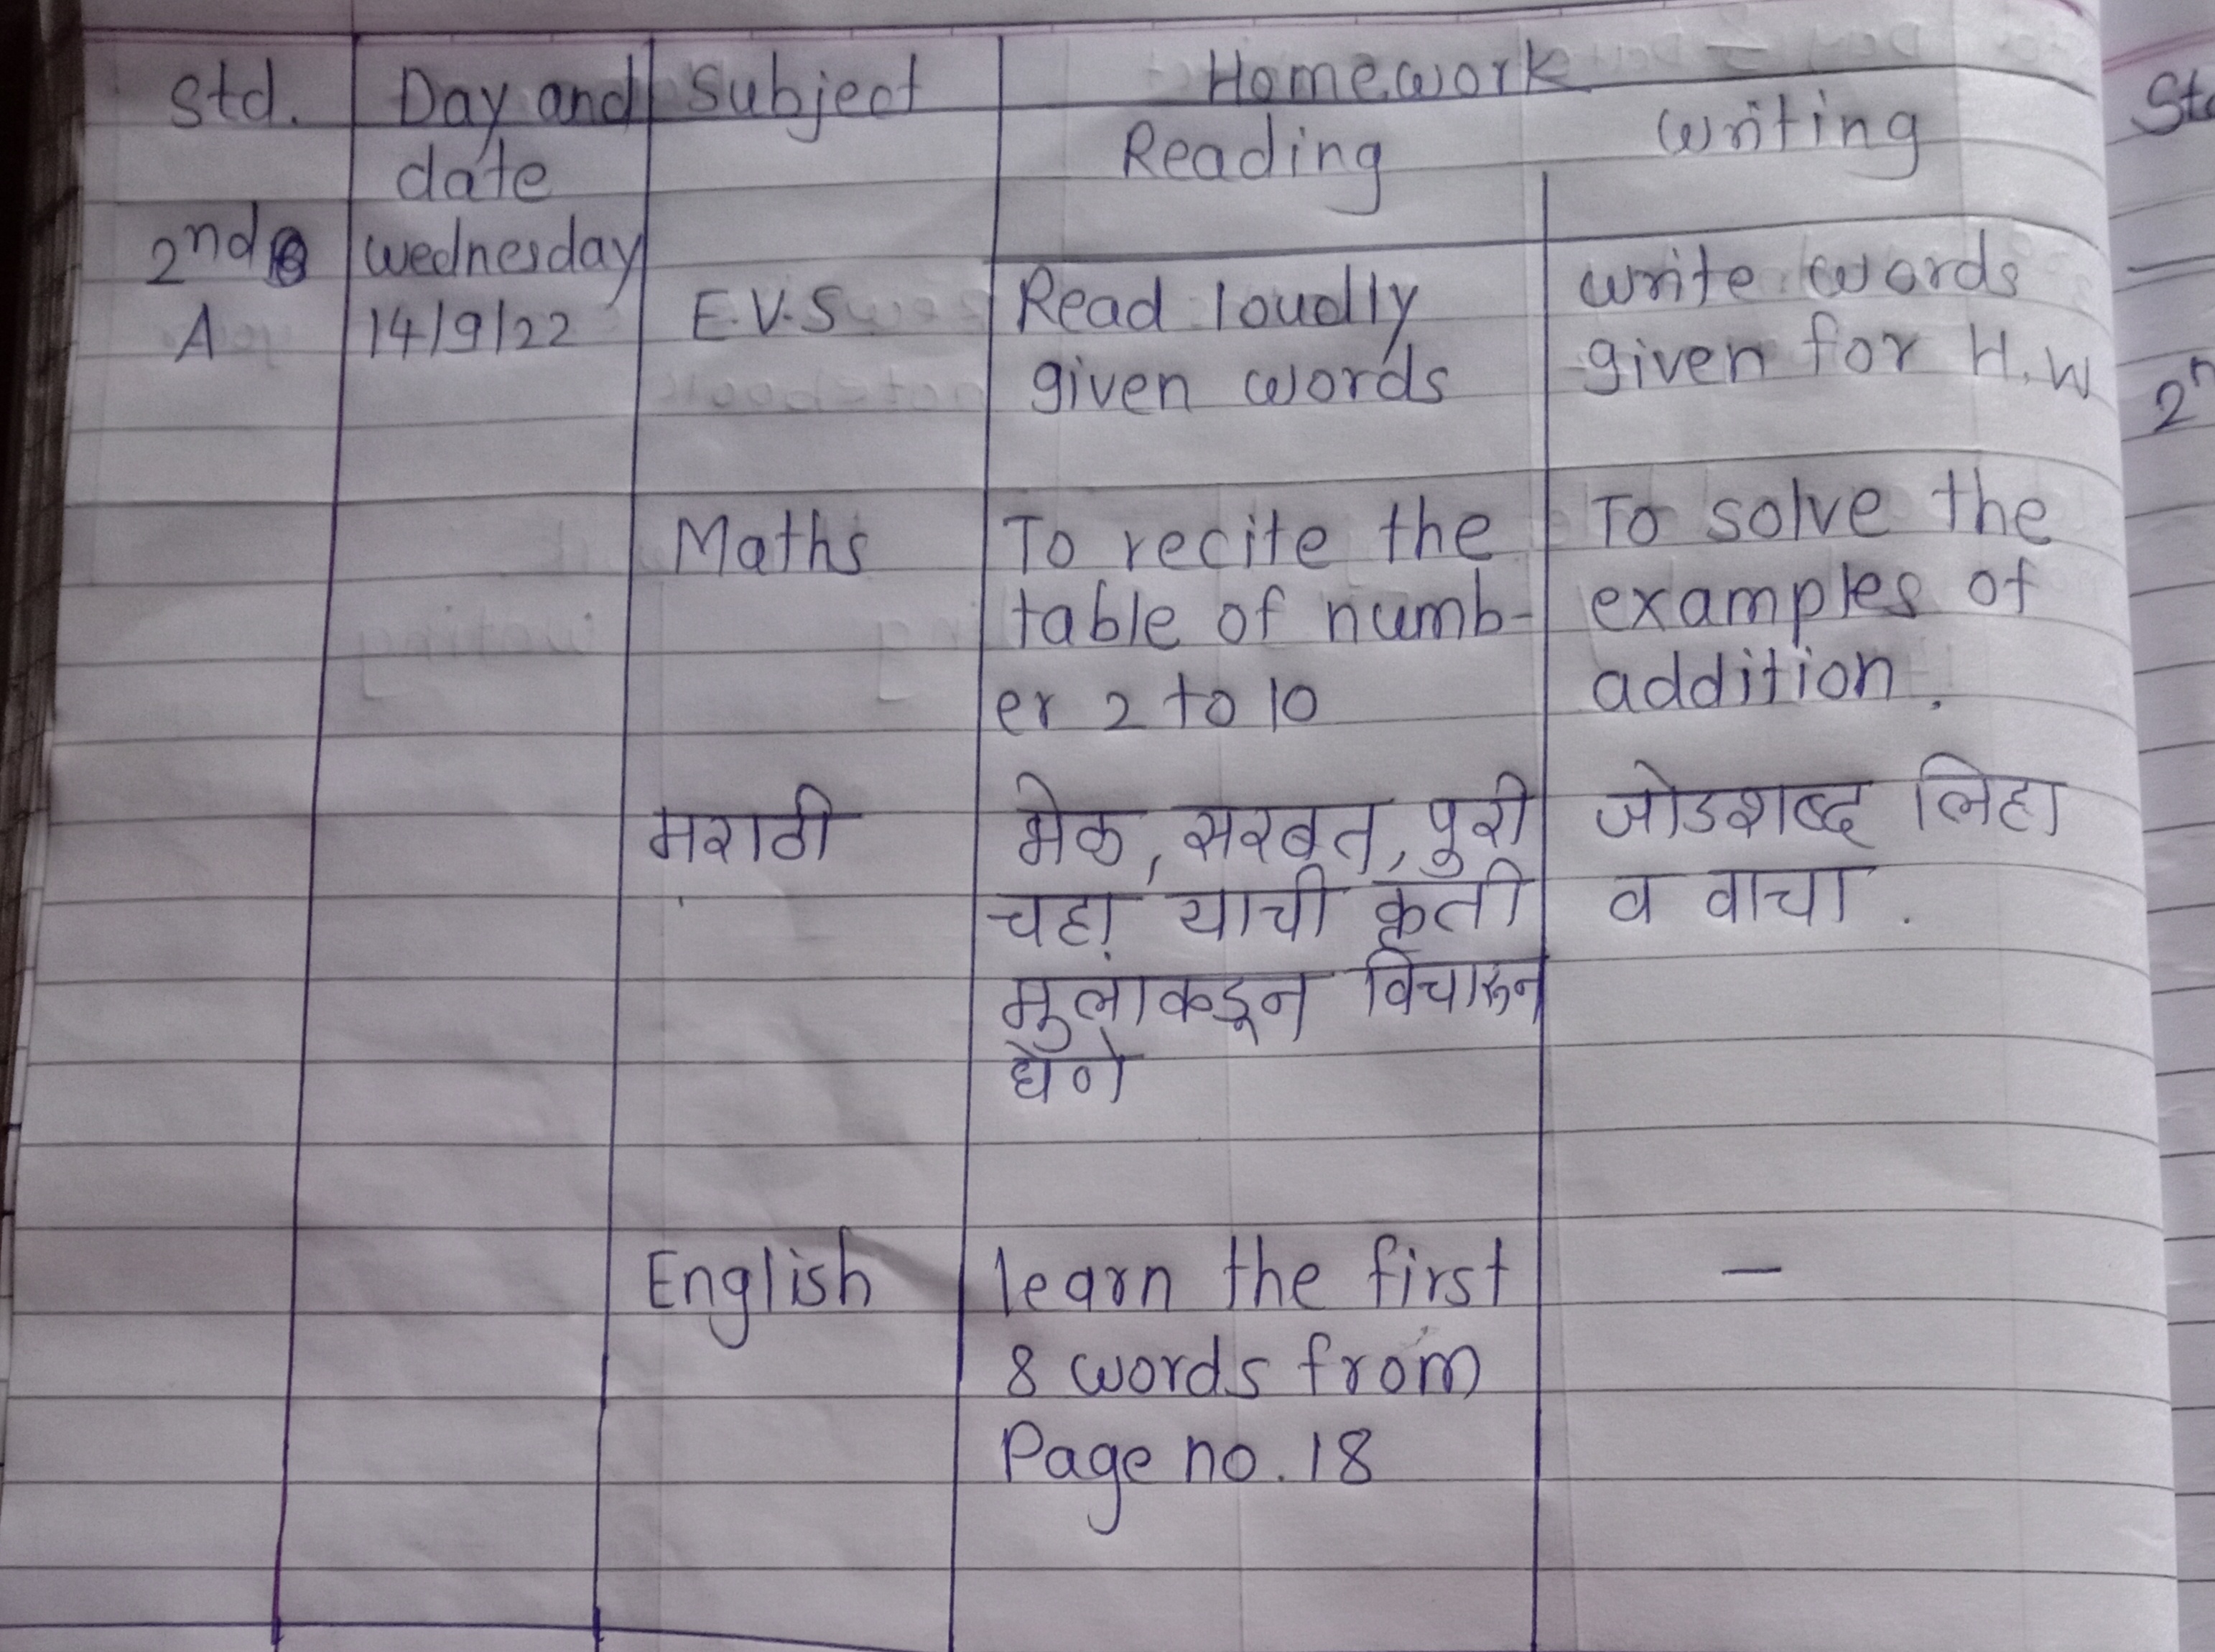 Std. Day and Subject Homework
date Reading Writing
2nd Wednesday
A 14/9/22 E.V.S Read loudly write words
given words given for H.W
Maths To recite the To solve the
table of numb- examples of
er 2 to 10 addition.
मराठी भेळ, सरबत, पुरी जोडशब्द लिहा
चहा याची कृती व वाचा.
मुलाकडून विचारून
घेणे
English learn the first —
8 words from
Page no. 18